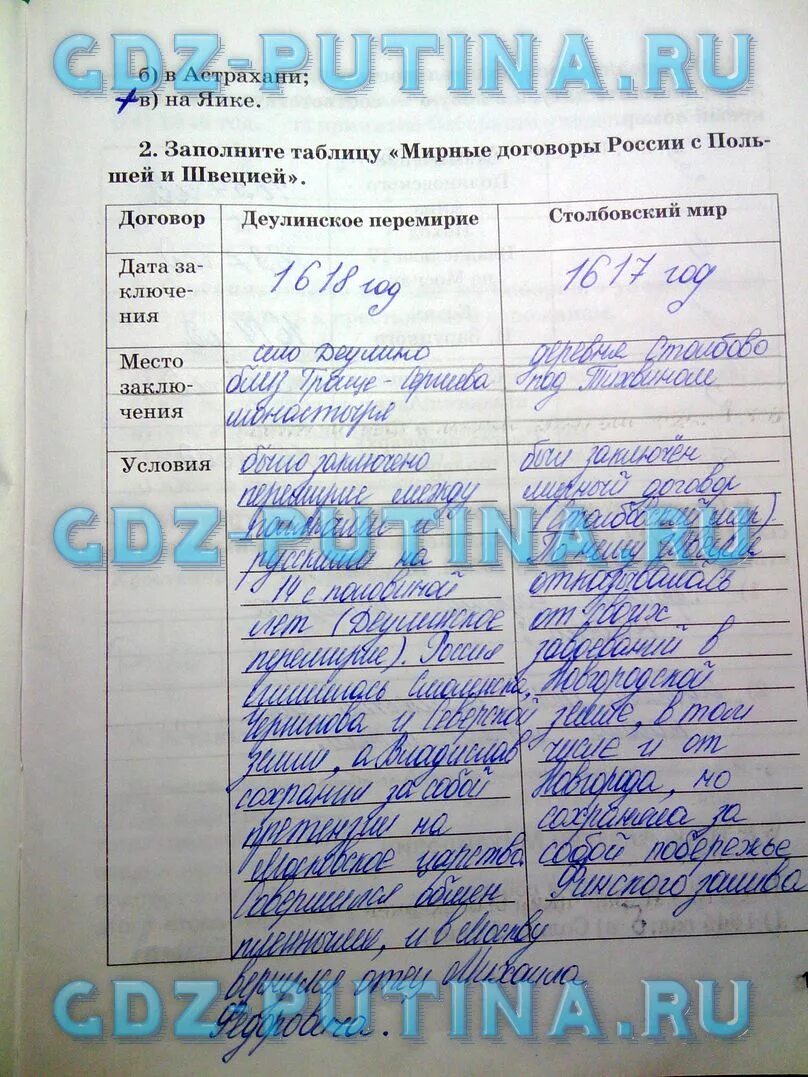 GDZ-PUTINA.RU
б) в Астрахани;
в) на Яике.
2. Заполните таблицу «Мирные договоры России с Поль-
шей и Швецией».
Договор
Деулинское перемирие
Столбовский мир
Дата за-
ключе-
ния
1618 год
1617 год
Место
заклю-
чения
село Деулино
близ Троице-Сергиева
монастыря
деревня Столбово
под Тихвином
Условия
было заключено
перемирие между
поляками и
русскими на
14 с половиной
лет (Деулинское
перемирие). Россия
лишилась Смоленска,
Чернигова и Северской
земли, а Владислав
сохранил за собой
претензии на
Московское царство.
Совершился обмен
пленными, и в Москву
вернулся отец Михаила
Фёдоровича.
был заключён
мирный договор
(Столбовский мир)
По нему Швеция
отказывалась
от своих
завоеваний в
Новгородской
земле, в том
числе и от
Новгорода, но
сохраняла за
собой побережье
Финского залива
GDZ-PUTINA.RU
GDZ-PUTINA.RU